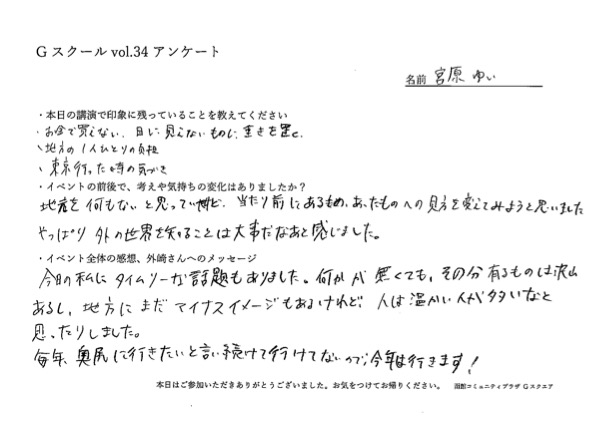 G スクール vol.34 アンケート
名前 宮原 ゆい
・本日の講演で印象に残っていることを教えてください
・お金で買えない、目に見えないものに重きを置く、
、地方の1人ひとりの負担
、東京行った時の気づき
・イベントの前後で、考えや気持ちの変化はありましたか？
地元を何もないと思っていたけど、当たり前にあるもの、あったものへの見方を変えてみようと思いました
やっぱり外の世界を知ることは大事だなあと感じました。
・イベント全体の感想、外崎さんへのメッセージ
今日の私にタイムリーな話題もありました。何かが無くても、その分有るものは沢山
あるし、地方にまだマイナスイメージもあるけれど、人は温かい人が多いなと
思ったりしました。
毎年、奥尻に行きたいと言い続けて行けてないので今年は行きます！
本日はご参加いただきありがとうございました。お気をつけてお帰りください。 函館コミュニティプラザ Gスクエア